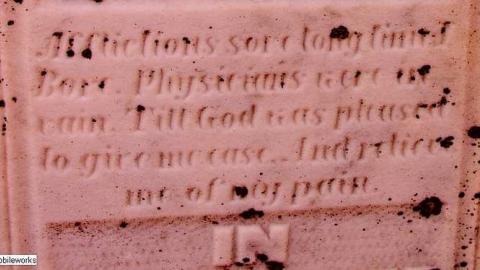 Afflictions sore long time I
Bore. Physicians were in
vain. Till God was pleased
to give me ease. And relieve
me of my pain.
IN
obileworks